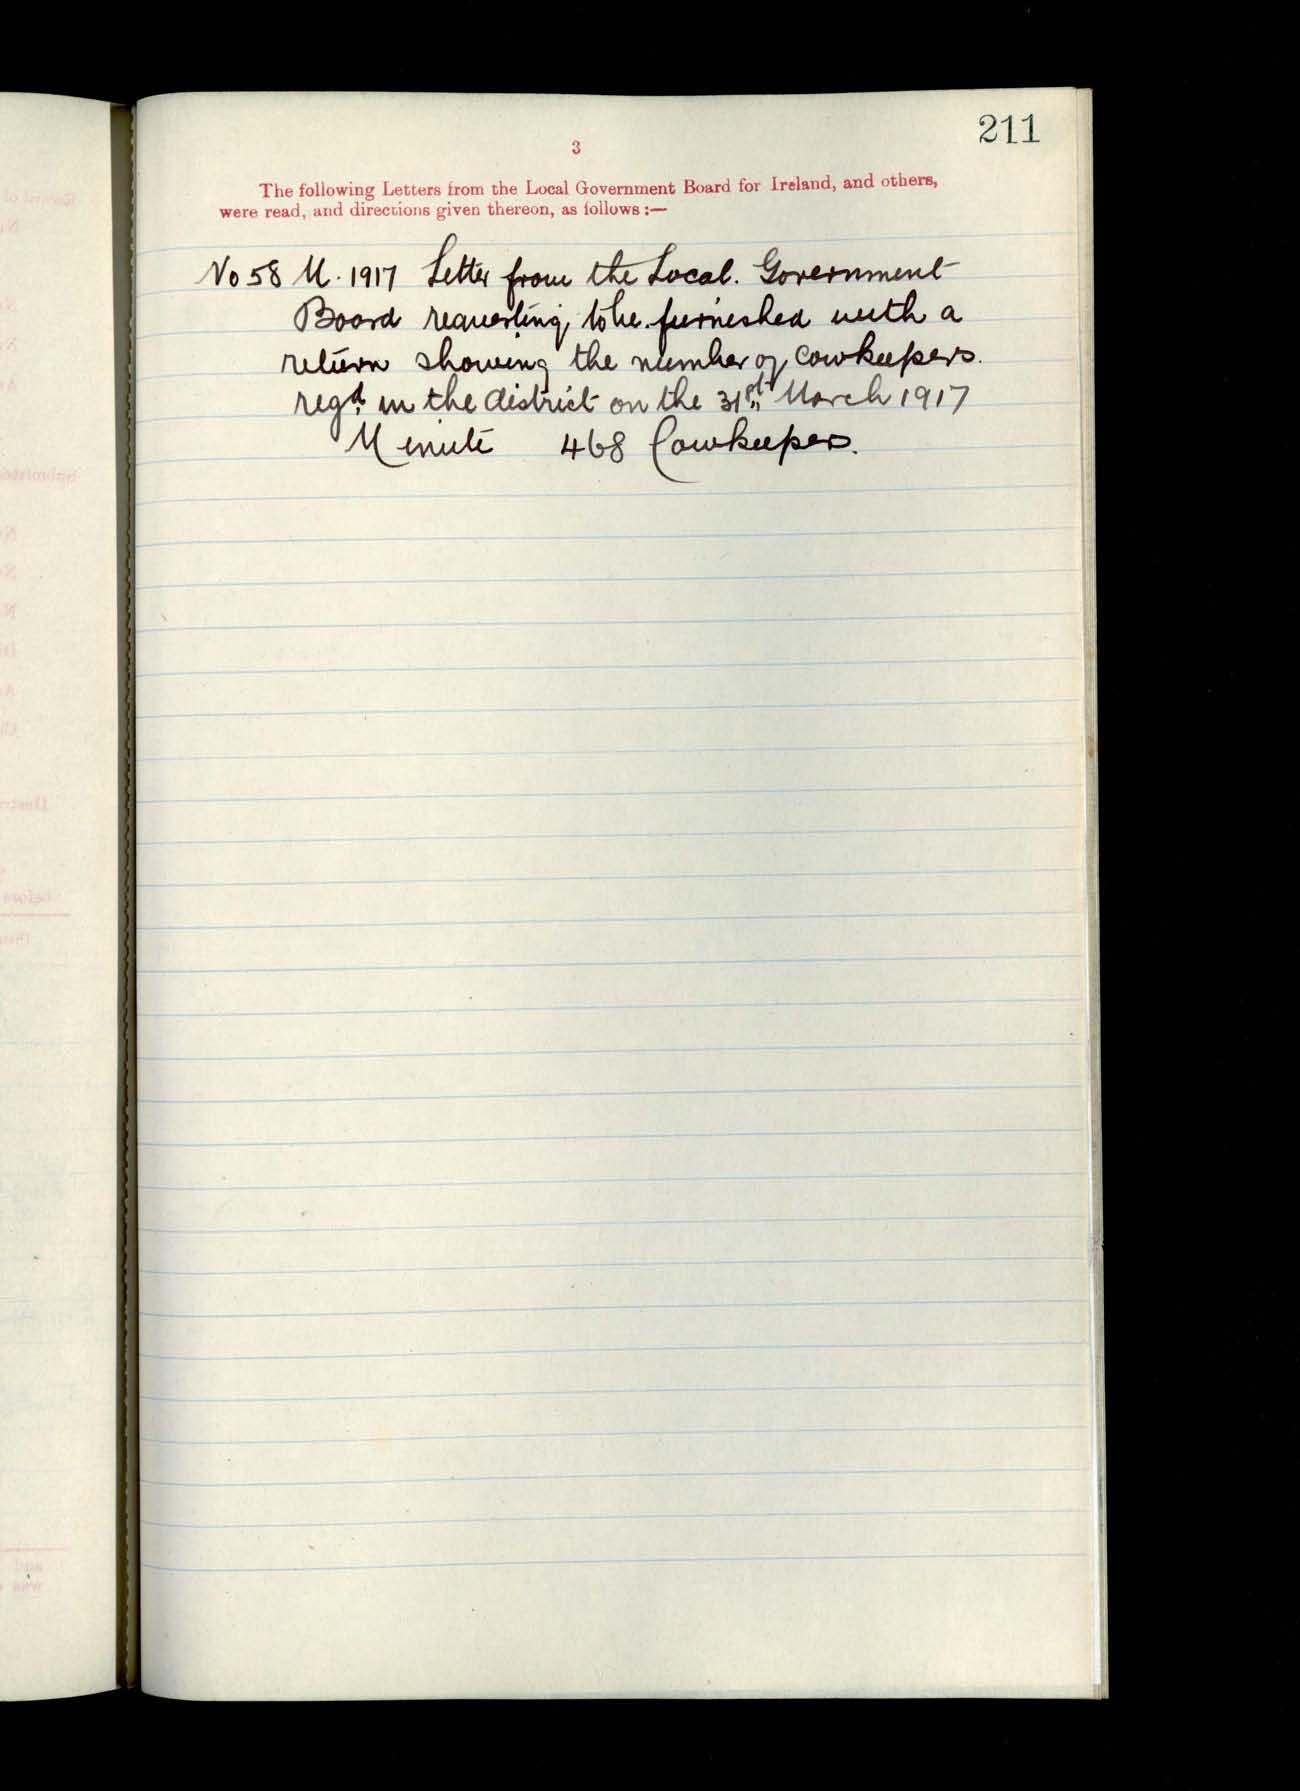 211
3
The following Letters from the Local Government Board for Ireland, and others,
were read, and directions given thereon, as follows :—
No 58 M. 1917 Letter from the Local. Government
Board requesting to be furnished with a
return showing the number of Cowkeepers.
regd. in the district on the 31st March 1917
Minute 468 Cowkeepers.